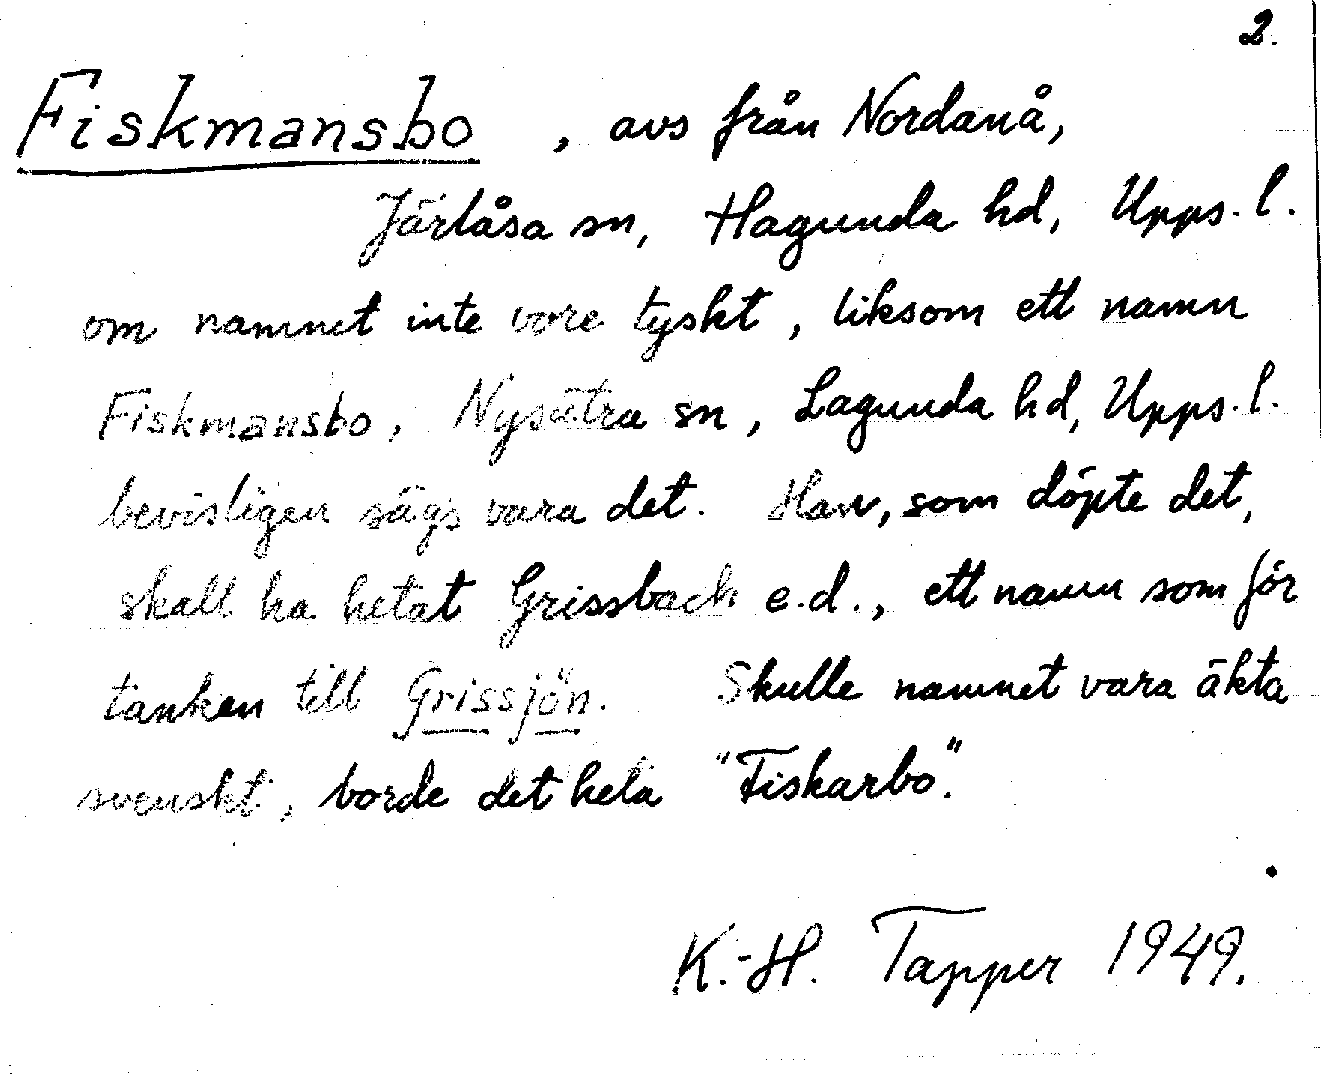 2.
Fiskmansbo, avs från Nordanå,
Järlåsa sn, Hagunda hd, Upps. l.
om namnet inte vore tyskt, liksom ett namn
Fiskmansbo, Nysätra sn, Lagunda hd, Upps. l.
bevisligen sägs vara det. Han, som döpte det,
skall ha hetat Grissbach e.d., ett namn som för
tanken till Grissjön. Skulle namnet vara äkta
svenskt, borde det heta "Fiskarbo".
K.-H. Tapper 1949.